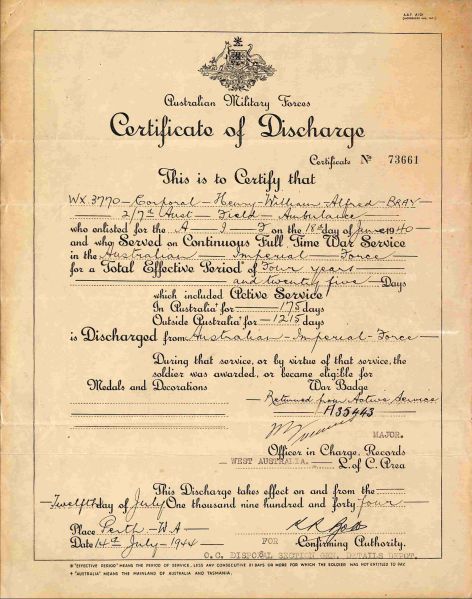 Australian Military Forces
Certificate of Discharge
Certificate No 73661
This is to Certify that
WX3770 - Corporal - Henry - William - Alfred - BRAY
2/7th Aust - Field - Ambulance
who enlisted for the A I F on the 18th day of June 1940
and who Served on Continuous Full Time War Service
in the Australian - Imperial Force
for a Total Effective Period* of Four years
and twenty five - Days
which included Active Service
In Australia† for 175 days
Outside Australia† for 1215 days
is Discharged from Australian - Imperial - Force
During that service, or by virtue of that service, the
soldier was awarded, or became eligible for
Medals and Decorations War Badge
Returned from Active Service
A35443
MAJOR.
Officer in Charge, Records
WEST AUSTRALIA. L. of C. Area
This Discharge takes effect on and from the
Twelfth day of July One thousand nine hundred and forty four
Place Perth - W.A -
Date 14th July - 1944
FOR Confirming Authority.
O.C. DISPOSAL SECTION GEN. DETAILS DEPOT.
* "EFFECTIVE PERIOD" MEANS THE PERIOD OF SERVICE, LESS ANY CONSECUTIVE 21 DAYS OR MORE FOR WHICH THE SOLDIER WAS NOT ENTITLED TO PAY
† "AUSTRALIA" MEANS THE MAINLAND OF AUSTRALIA AND TASMANIA.